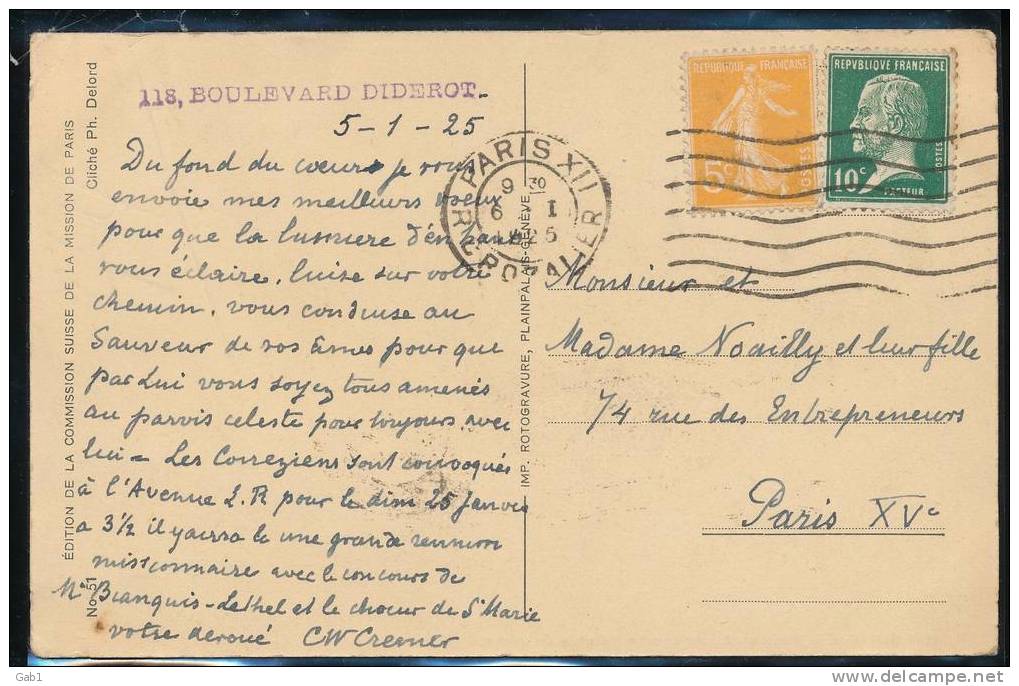 118, BOULEVARD DIDEROT.
5-1-25
Du fond du cœur je vous
envoie mes meilleurs voeux
pour que la lumiere d'en haut
vous éclaire, luise sur votre
chemin, vous conduise au
Sauveur de vos âmes pour que
par Lui vous soyez tous amenés
au parvis celeste pour toujours avec
lui = Les Correziens sont convoqués
à l'Avenue L.R pour le dim 25 Janvier
a 3½ il y aura la une grande reunion
missionnaire avec le concours de
Mr Bianquis - Lethel et le choeur de St Marie
votre dévoué CW Cremer
ÉDITION DE LA COMMISSION SUISSE DE LA MISSION DE PARIS
Cliché Ph. Delord
No 51
IMP. ROTOGRAVURE, PLAINPALAIS-GENÈVE
PARIS XII
9 30
6 I
1925
R. CROZATIER
REPUBLIQUE FRANÇAISE
5c
POSTES
REPVBLIQVE FRANÇAISE
10c
POSTES
PASTEUR
Monsieur et
Madame Noailly et leur fille
74 rue des Entrepreneurs
Paris XVe
Gab1
http://www.delcampe.net